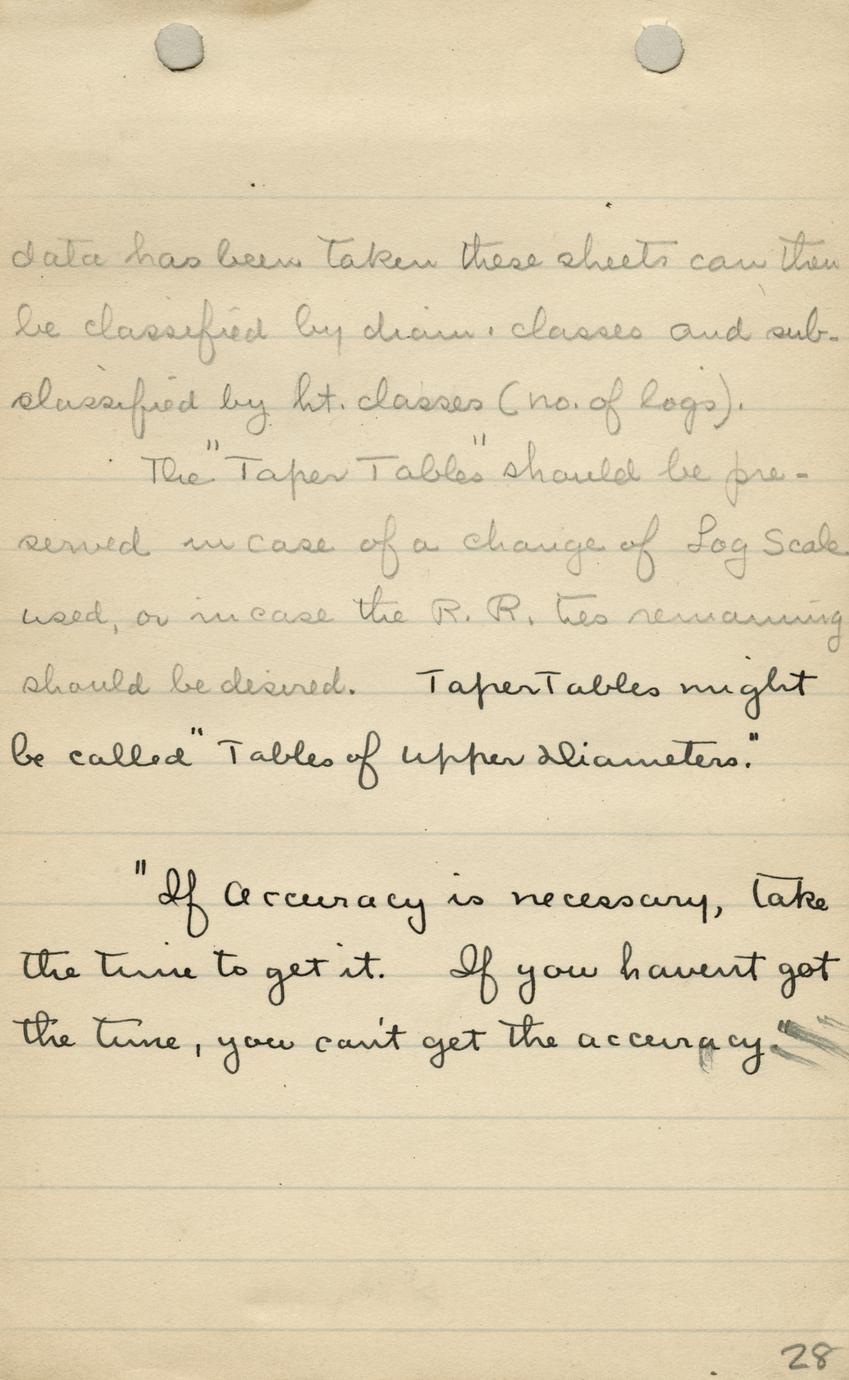 data has been taken these sheets can then
be classified by diam. classes and sub-
classified by ht. classes (no. of logs).
The "Taper Tables" should be pre-
served in case of a change of Log Scale
used, or in case the R. R. ties remaining
should be desired. Taper Tables might
be called "Tables of Upper Diameters."
"If Accuracy is necessary, take
the time to get it. If you havent got
the time, you can't get the accuracy."
28